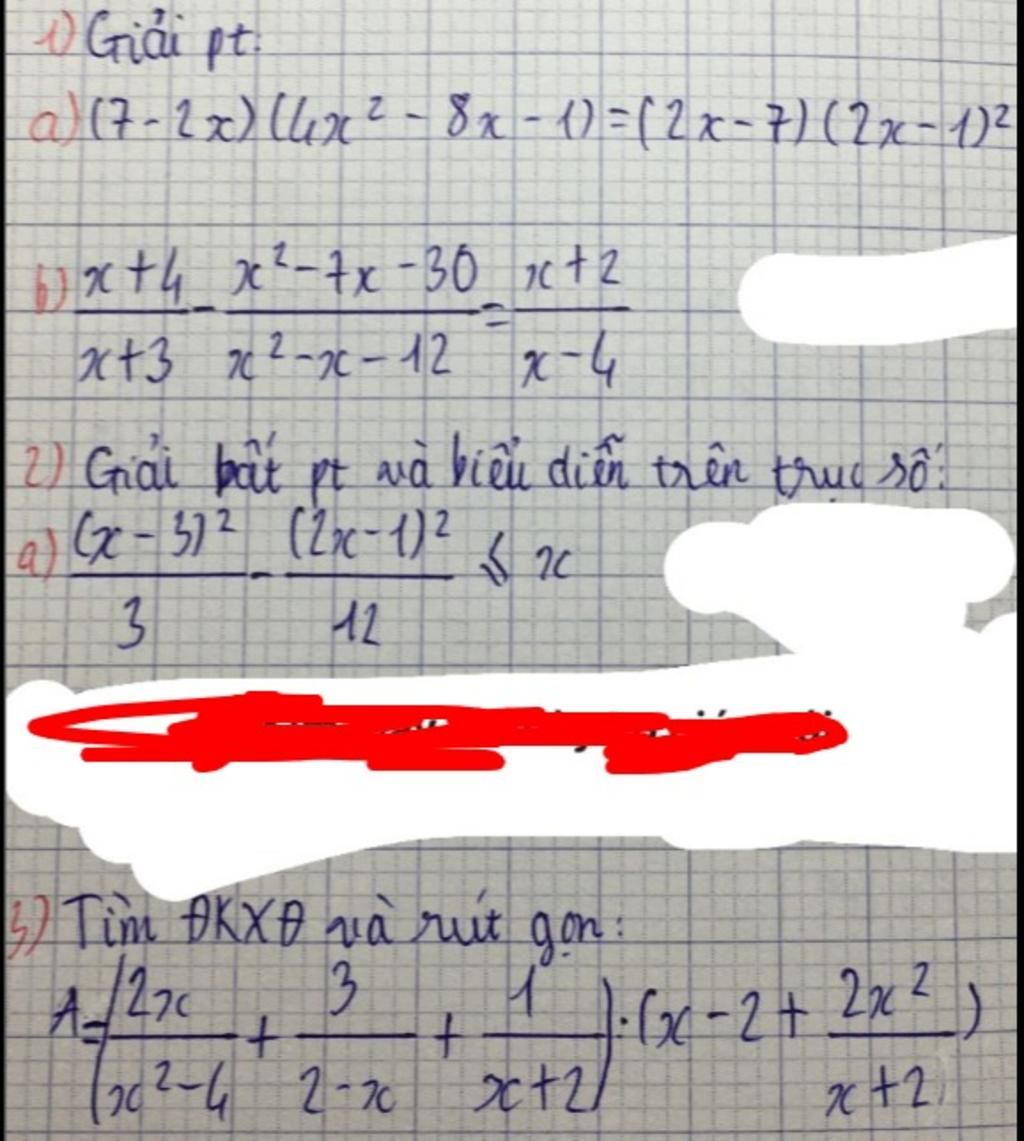 1) Giải pt:
a) (7-2x)(4x² - 8x - 1) = (2x-7)(2x-1)²
b) \frac{x+4}{x+3} - \frac{x²-7x-30}{x²-x-12} = \frac{x+2}{x-4}
2) Giải bất pt và biểu diễn trên trục số:
a) \frac{(x-3)²}{3} - \frac{(2x-1)²}{12} ≤ x
3) Tìm ĐKXĐ và rút gọn:
A = (\frac{2x}{x²-4} + \frac{3}{2-x} + \frac{1}{x+2}) . (x-2 + \frac{2x²}{x+2})